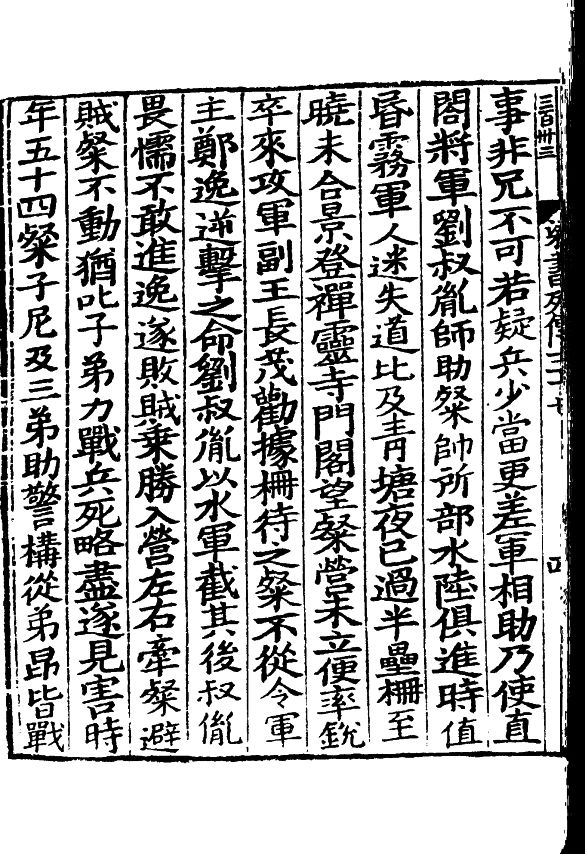 事非兄不可若疑兵少當更差軍相助乃使直
閤將軍劉叔胤師助粲帥所部水陸俱進時值
昏霧軍人迷失道比及青塘夜已過半壘柵至
曉未合景登禪靈寺門閣望粲營未立便率銳
卒來攻軍副王長茂勸據柵待之粲不從令軍
主鄭逸逆擊之命劉叔胤以水軍截其後叔胤
畏懦不敢進逸遂敗賊乗勝入營左右牽粲避
賊粲不動猶叱子弟力戰兵死略盡遂見害時
年五十四粲子尼及三弟助警構從弟昂皆戰
三百卅三
梁書列傳三十七
四